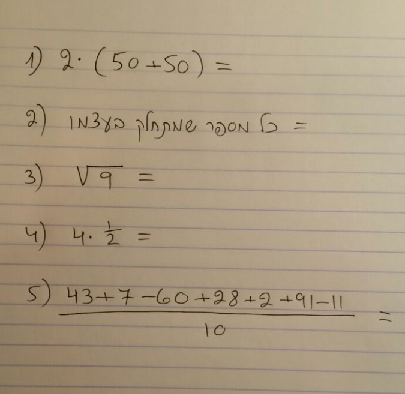 1) 2 · (50+50) =
2) כל מספר שמתחלק בעצמו =
3) √9 =
4) 4 · 1/2 =
5) (43+7-60+28+2+91-11)/10 =